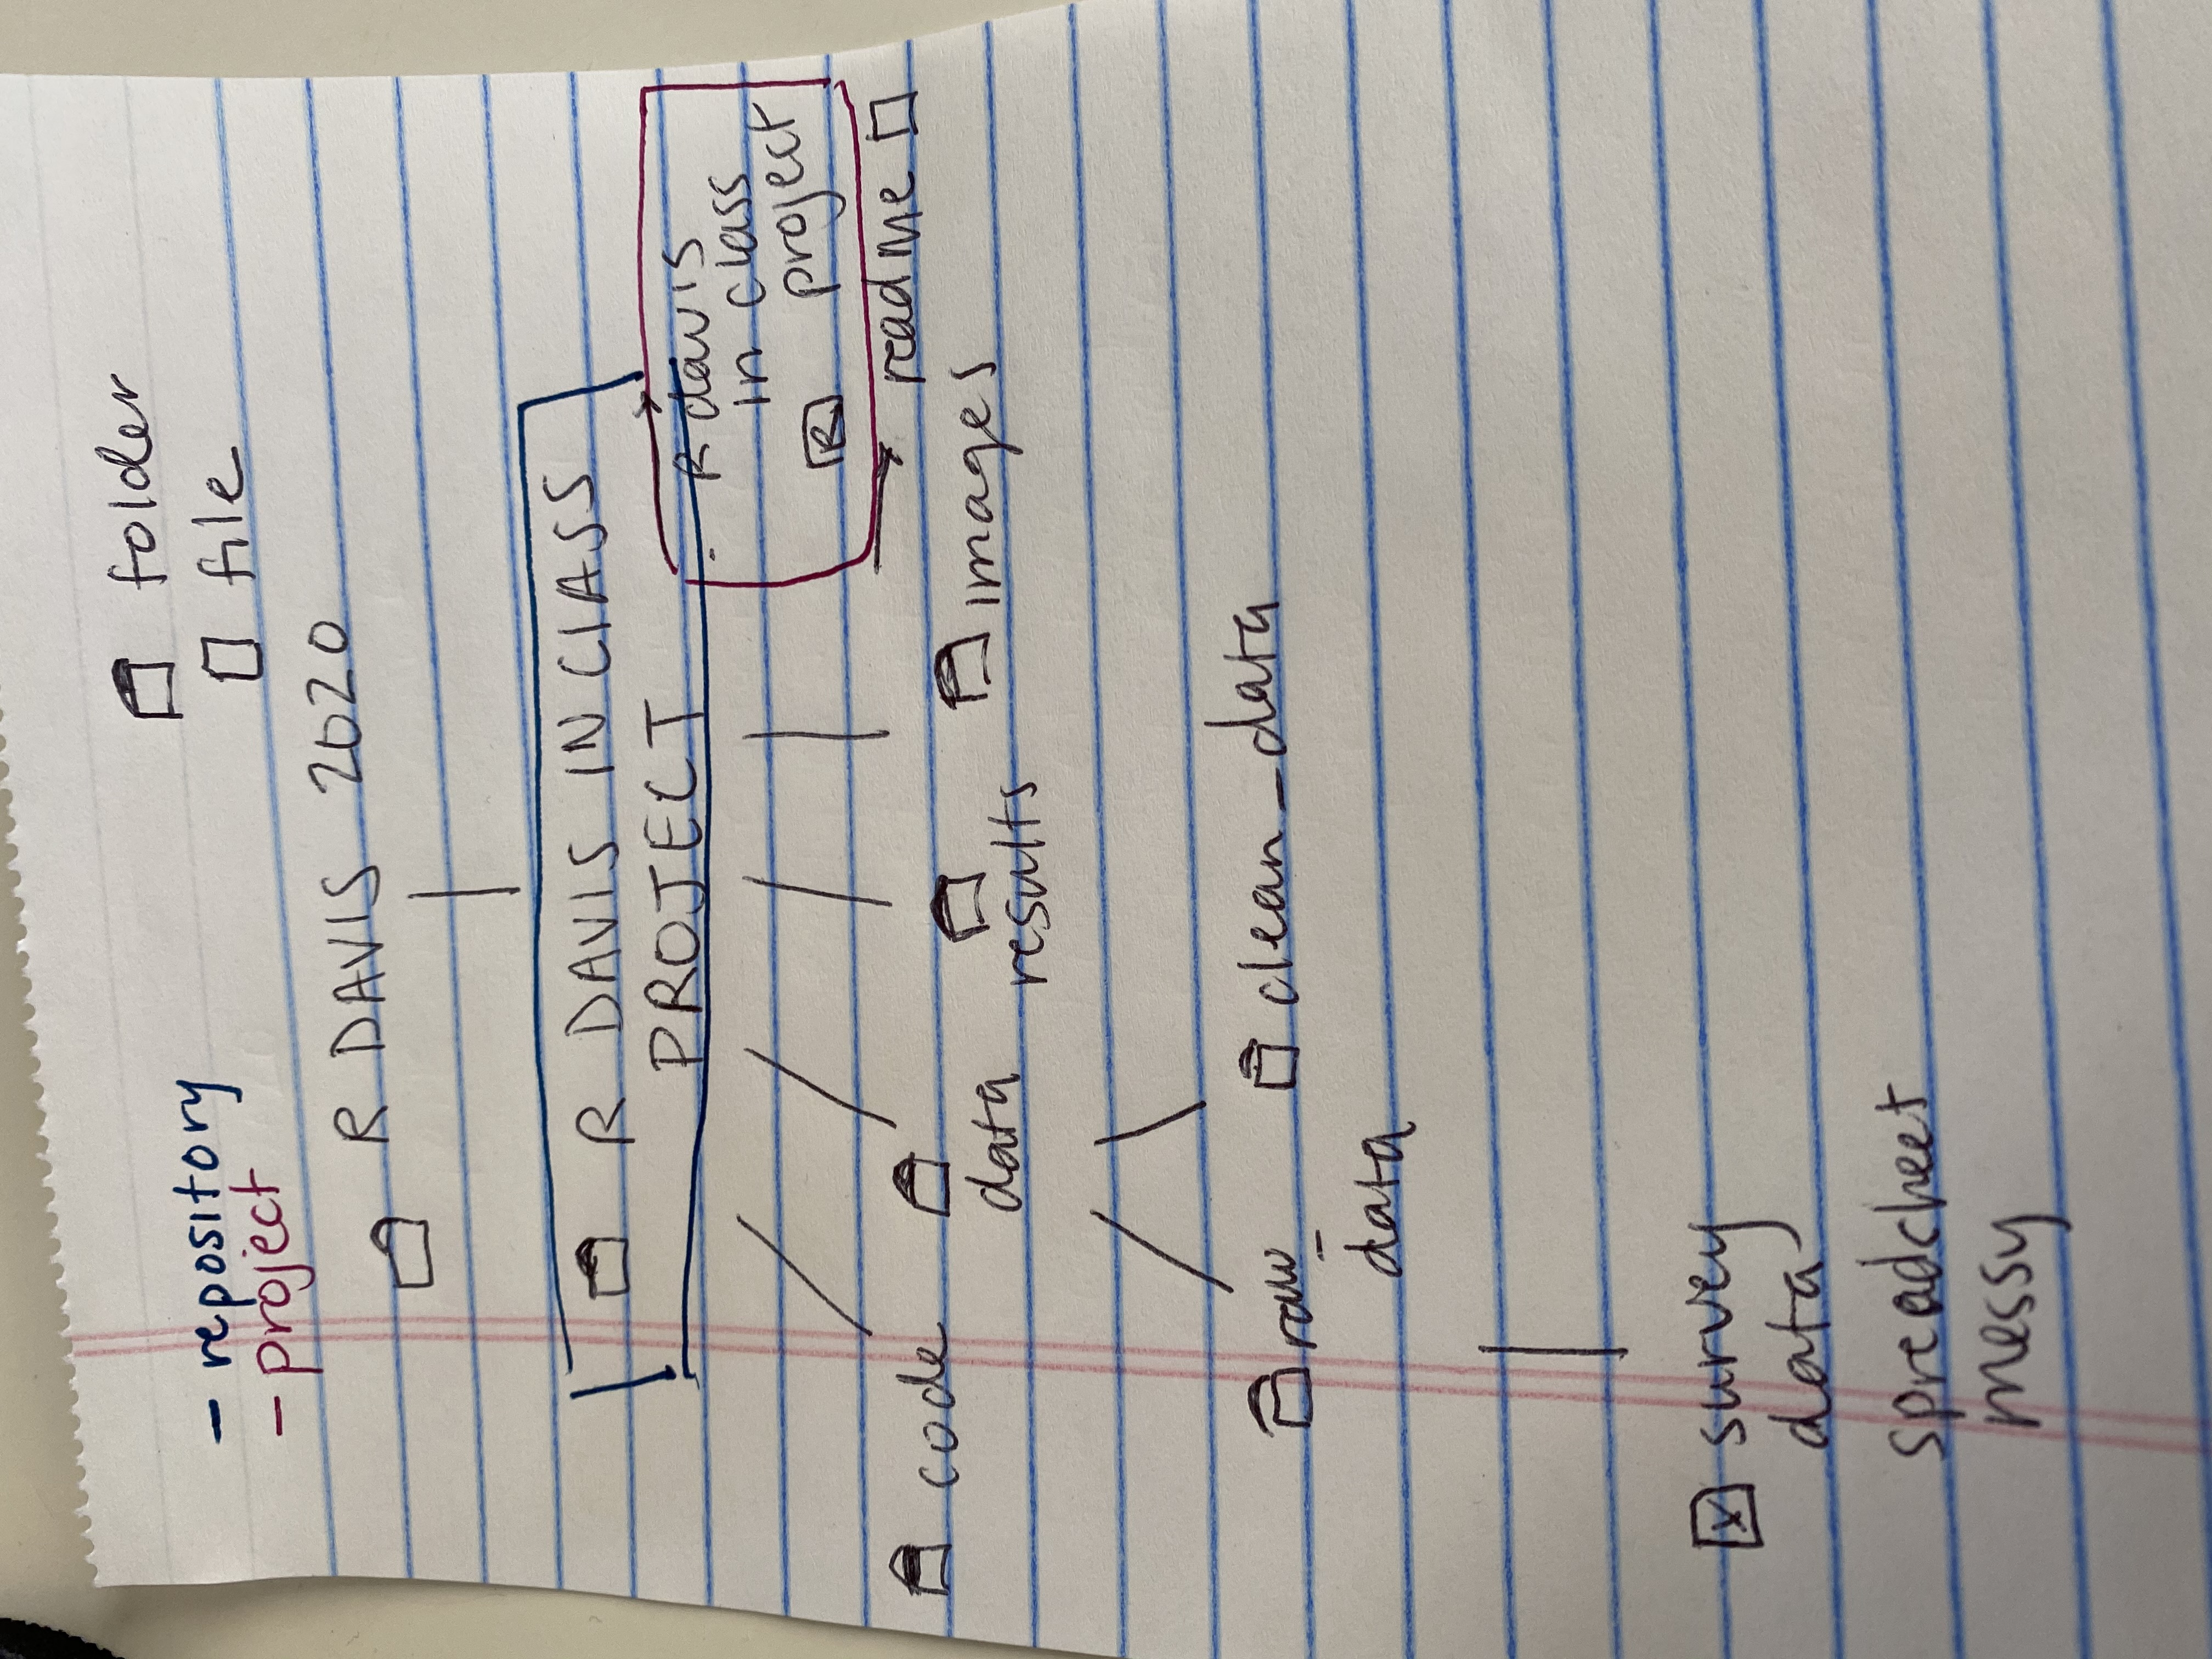 folder
- repository
file
- project
R DAVIS 2020
R DAVIS IN CLASS
PROJECT
R davis
in class
project
R
readme
code
data
results
images
raw_
data
clean_data
x survey
data
spreadcheet
messy